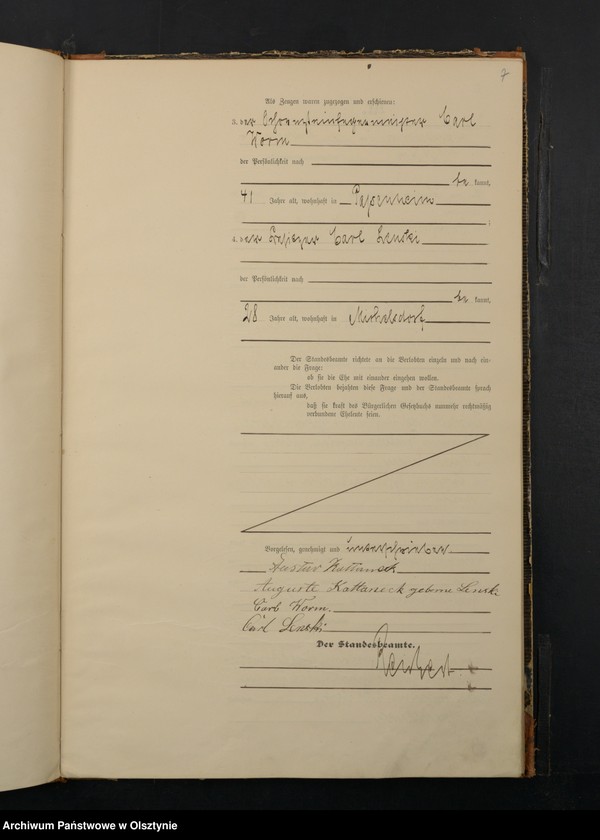 7
Als Zeugen waren zugezogen und erschienen:
3. der Schornsteinfegermeister Carl
Korm
der Persönlichkeit nach
be kannt,
41 Jahre alt, wohnhaft in
;
4. der Besitzer Carl Lenski
der Persönlichkeit nach
be kannt,
28 Jahre alt, wohnhaft in Michelsdorf
Der Standesbeamte richtete an die Verlobten einzeln und nach ein-
ander die Frage:
ob sie die Ehe mit einander eingehen wollen.
Die Verlobten bejahten diese Frage und der Standesbeamte sprach
hierauf aus,
daß sie kraft des Bürgerlichen Gesetzbuchs nunmehr rechtmäßig
verbundene Eheleute seien.
Vorgelesen, genehmigt und unterschrieben
Gustav
Auguste geborne Lenski
Carl Korm.
Carl Lenski
Der Standesbeamte.
Archiwum Państwowe w Olsztynie